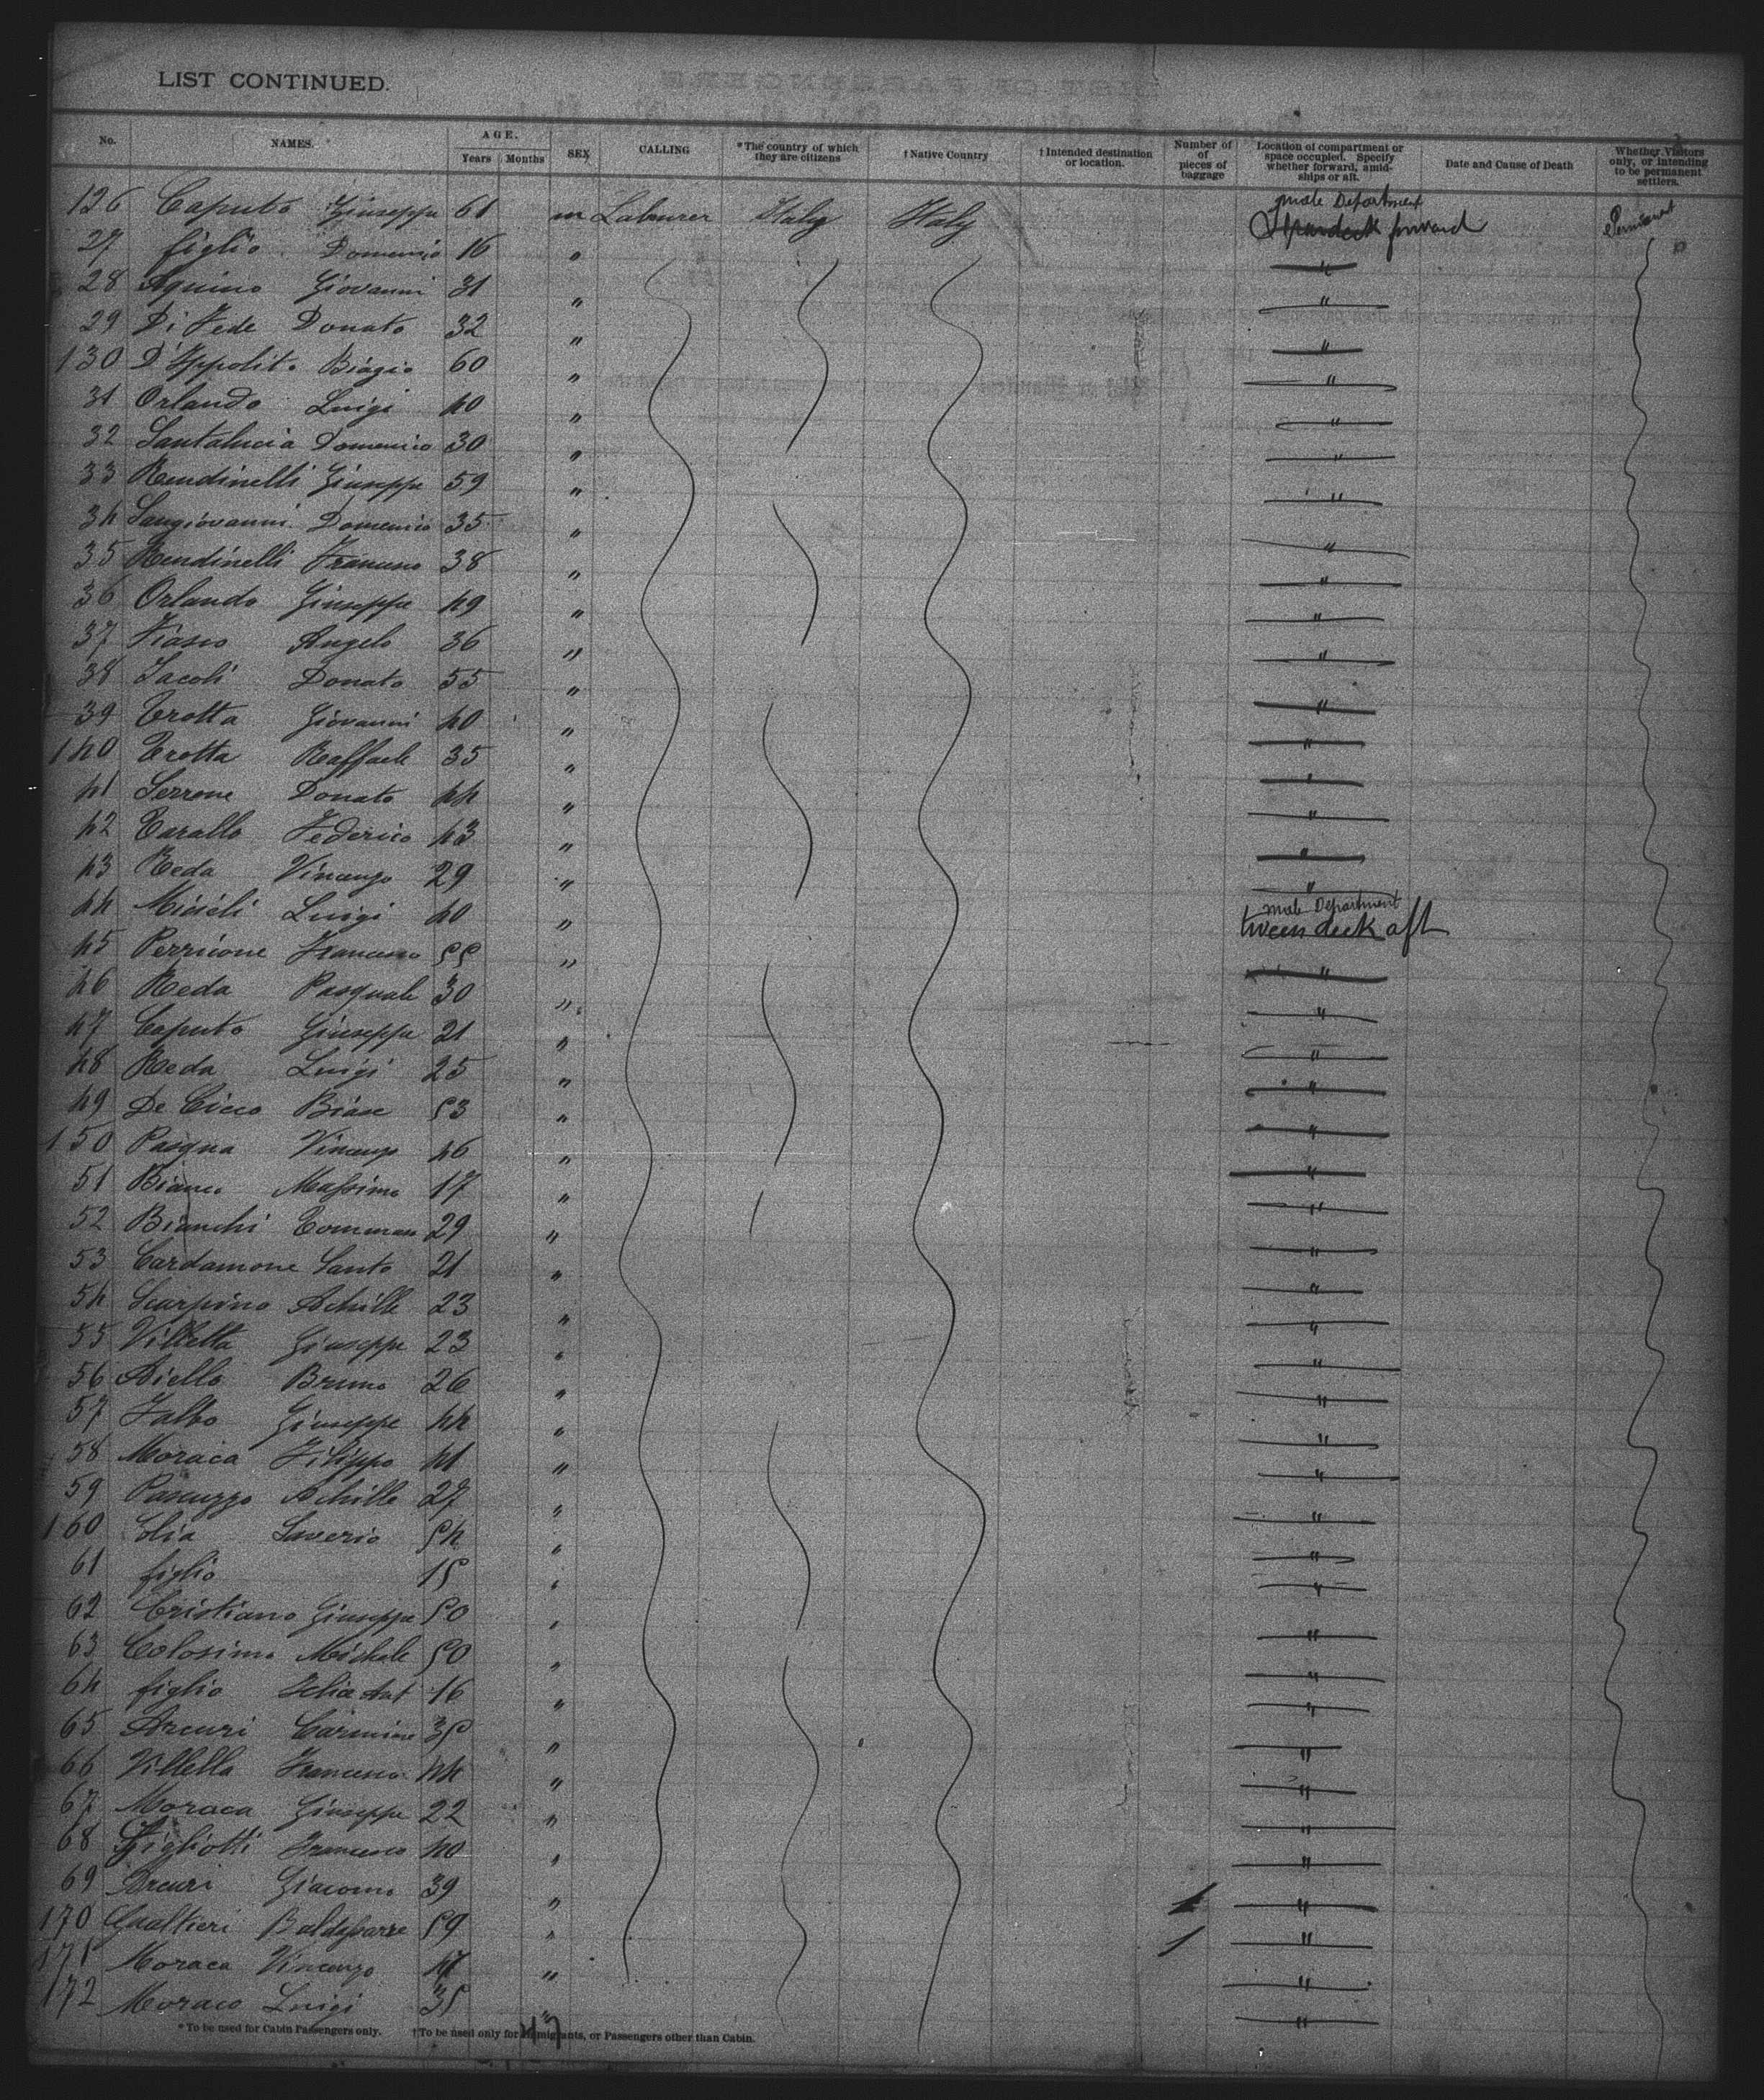 LIST CONTINUED.
No. NAMES. AGE. Years Months SEX CALLING *The country of which they are citizens †Native Country †Intended destination or location. Number of pieces of baggage Location of compartment or space occupied. Specify whether forward, amidships or aft. Date and Cause of Death Whether Visitors only, or intending to be permanent settlers.
126 Caputo Giuseppe 61 m Labourer Italy Italy male Department forward
27 figlio Domenico 16 "  "
28 Aquino Giovanni 31 " "
29 Di Fede Donato 32 " "
130 D'Ippolito Biagio 60 " "
31 Orlando Luigi 40 " "
32 Santalucia Domenico 30 " "
33 Rendinelli Giuseppe 59 " "
34 Sangiovanni Domenico 35 " "
35 Rendinelli Francesco 38 " "
36 Orlando Giuseppe 49 " "
37 Fiasco Angelo 36 " "
38 Iacoli Donato 55 " "
39 Trotta Giovanni 40 " "
140 Trotta Raffaele 35 " "
41 Serrone Donato 44 " "
42 Carallo Federico 43 " "
43 Reda Vincenzo 29 " "
44 Micieli Luigi 40 " male Department tween deck aft
45 Perricone Francesco 55 " "
46 Reda Pasquale 30 " "
47 Caputo Giuseppe 21 " "
48 Reda Luigi 25 " "
49 De Cicco Biase 53 " "
150 Pasqua Vincenzo 46 " "
51 Bianco Massimo 17 " "
52 Bianchi Tommaso 29 " "
53 Cardamone Santo 21 " "
54 Scarpino Achille 23 " "
55 Villetta Giuseppe 23 " "
56 Aiello Bruno 26 " "
57 Falbo Giuseppe 44 " "
58 Moraca Filippo 41 " "
59 Pascuzzo Achille 27 " "
160 Elia Saverio 54 " "
61 figlio 15 " "
62 Cristiano Giuseppe 50 " "
63 Colosimo Michele 50 " "
64 figlio Ant 16 " "
65 Arcuri Carmine 35 " "
66 Villella Francesco 44 " "
67 Moraca Giuseppe 22 " "
68 Gigliotti Francesco 40 " "
69 Arcuri Giacomo 39 " 1 "
170 Gualtieri Baldassarre 59 " 1 "
171 Moraca Vincenzo " "
172 Moraco Luigi 35 " "
*To be used for Cabin Passengers only. †To be used only for Immigrants, or Passengers other than Cabin.
47